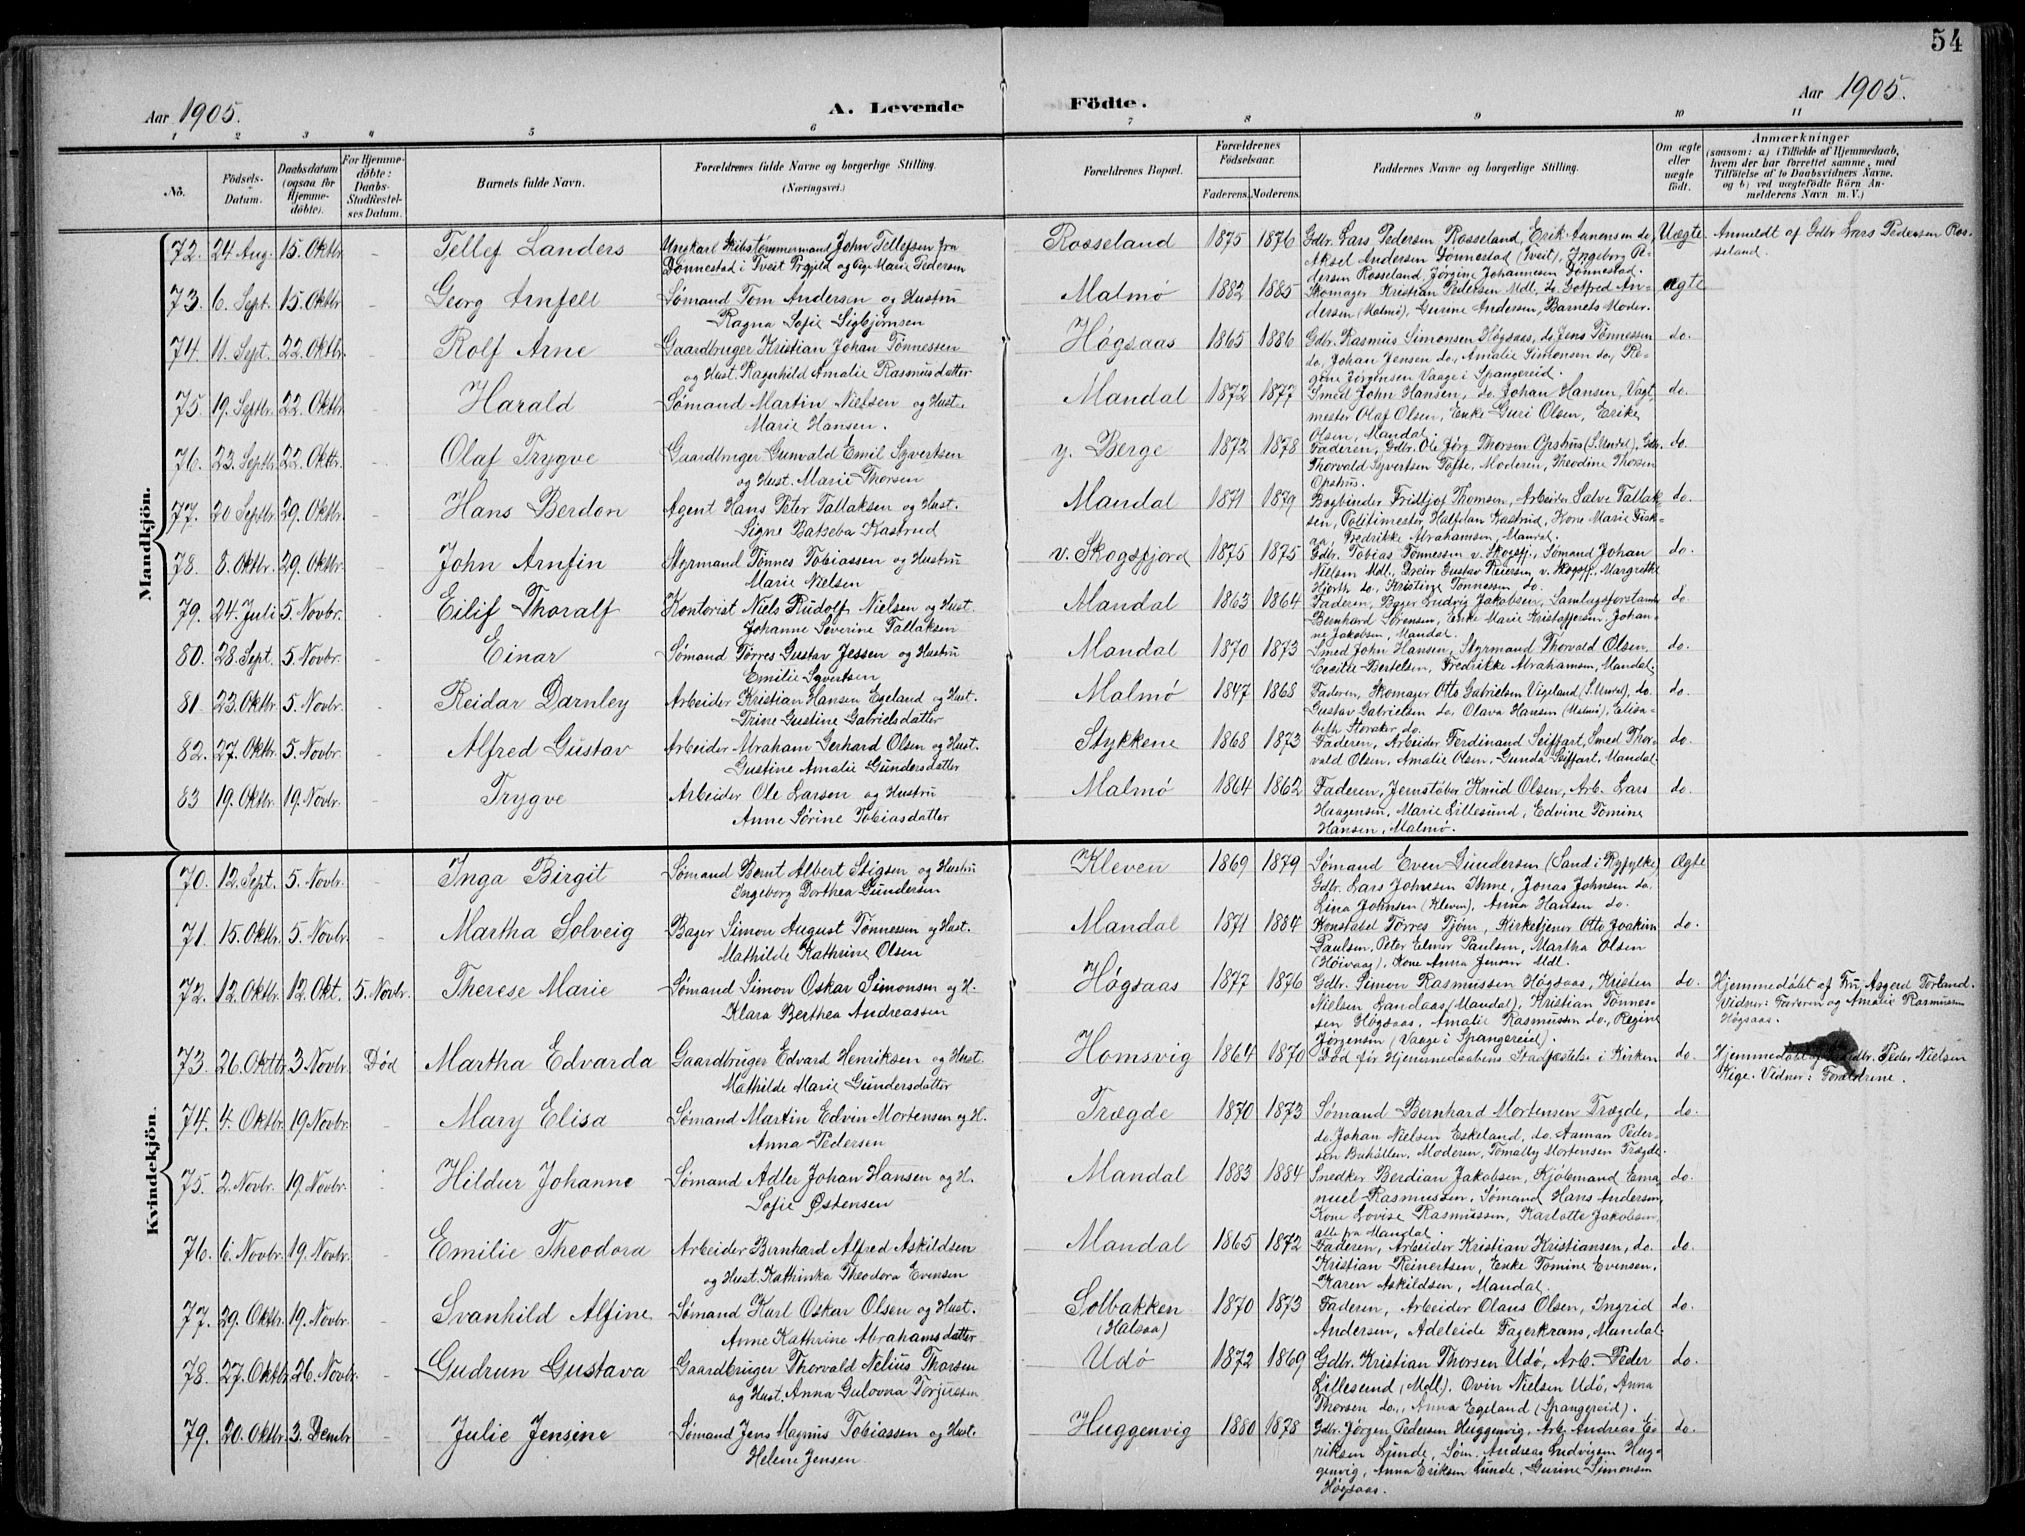 54
Aar 1905. A. Levende Födte. Aar 1905.
1 2 3 4 5 6 7 8 9 10 11
No. Födsels-Datum. Daabsdatum (ogsaa for Hjemmedöbte). For Hjemmedöbte: Daabs-Stadfæstelses Datum. Barnets fulde Navn. Forældrenes fulde Navne og borgerlige Stilling. (Næringsvei.) Forældrenes Bopæl. Forældrenes Födselsaar. Faderens. Moderens. Faddernes Navne og borgerlige Stilling. Om ægte eller uægte födt. Anmærkninger (saasom: a) i Tilfælde af Hjemmedaab, hvem der har forrettet samme, med Tilföielse af to Daabsvidners Navne, og b) ved uægtefödte Börn Anmelderens Navn m. V.)
Mandkjön.
72. 24 Aug. 15. Oktbr. - Tellef Landers Ungkarl Skibstømmermand John Tellefsen fra Rosseland 1875 1876 Gdbr. Lars Pedersen Rosseland, Erik Aanensen do, Uægte Anmeldt af Gdbr Lars Pedersen Ros-
Dønnestad i Tveit Prgjeld og Pige Marie Pedersen Aksel Andersen Dønnestad (Tveit), Ingeborg Pe- seland.
dersen Rosseland, Jørgine Johannesen Dønnestad.
73. 6. Sept. 15. Oktbr. - Georg Arnfelt Sømand Tom Andersen og Hustru Malmø 1882 1885 Skomager Kristian Pedersen Mdl., do. Gotfred An- ægte
Ragna Sofie Sigbjørnsen dersen (Malmø), Gunine Andersen, Barnets Moder.
74. 11. Sept. 22. Oktbr. - Rolf Arne Gaardbruger Kristian Johan Tønnessen Høgsaas 1865 1886 Gdbr. Rasmus Simonsen Høgsaas, do Jens Tønnessen do.
og Hust. Ragnhild Amalie Rasmusdatter do, Johan Jensen do, Amalie Simonsen do, Re-
gine Jørgensen Vaage i Spangereid.
75. 19. Septbr. 22. Oktbr. - Harald Sømand Martin Nielsen og Hust. Mandal 1872 1877 Smed John Hansen, do. Johan Hansen, Vagt- do.
Marie Hansen. mester Olaf Olsen, Enke Guri Olsen, Erike
Olsen, Mandal.
76. 23. Septbr. 22. Oktbr. - Olaf Trygve Gaardbruger Gunvald Emil Syvertsen y. Berge 1872 1878 Faderen, Gdbr. Ole Jørg. Thorsen Opshus (S. Undal), Gdbr. do.
og Hust. Marie Thorsen Thorvald Syvertsen Tofte, Moderen, Theodine Thorsen
Opshus.
77. 20 Septbr. 29. Oktbr. - Hans Berdon Agent Hans Peter Tallaksen og Hust. Mandal 1871 1879 Bogbinder Fridtjof Thomsen, Arbeider Salve Tallak- do.
Signe Batseba Kastrud sen, Politimester Halfdan Kastrud, Kone Marie Fisk-
aa, Fredrikke Abrahamsen, Mandal.
78. 8. Oktbr. 29. Oktbr. - John Arnfin Styrmand Tønnes Tobiassen og Hustru v. Skogsfjord 1875 1875 Gdbr. Tobias Tønnessen v. Skogsfj., Sømand Johan do.
Marie Nielsen Nielsen Mdl., Dreier Gustav Reiersen v. Skogsfj., Margrethe
Hjorth do, Kristine Tønnessen do.
79. 24. Juli 5. Novbr. - Eilif Thoralf Kontorist Niels Rudolf Nielsen og Hust. Mandal 1863 1864 Faderen, Bager Ludvig Jakobsen, Samlagsforstander do
Johanne Severine Tallaksen Bernhard Sørensen, Enke Marie Kristoffersen, Johan-
ne Jakobsen, Mandal.
80. 28. Sept. 5. Novbr. - Einar Sømand Tørres Gustav Jessen og Hustru Mandal 1870 1873 Smed John Hansen, Styrmand Thorvald Olsen, do.
Emilie Syvertsen Cecilie Bertelsen, Fredrikke Abrahamsen, Mandal.
81. 23. Oktbr. 5. Novbr. - Reidar Darnley Arbeider Kristian Hansen Egeland og Hust. Malmø 1847 1868 Faderen, Skomager Otto Gabrielsen Vigeland (S. Undal), do. do.
Trine Gustine Gabrielsdatter Gustav Gabrielsen do, Olava Hansen (Malmø), Elisa-
beth Storaker do.
82. 27. Oktbr. 5. Novbr. - Alfred Gustav Arbeider Abraham Gerhard Olsen og Hust. Stykkene 1868 1873 Faderen, Arbeider Ferdinand Seiffart, Smed Thor- do.
Gustine Amalie Gundersdatter vald Olsen, Amalie Olsen, Gunda Seiffart, Mandal.
83 19. Oktbr. 19. Novbr. - Trygve Arbeider Ole Larsen og Hustru Malmø 1864 1862 Faderen, Jernstøber Knud Olsen, Arb. Lars do.
Anne Sørine Tobiasdatter Haagensen, Marie Lillesund, Edvine Tomine
Hansen, Malmø.
Kvindekjön.
70. 12. Sept. 5. Novbr. - Inga Birgit Sømand Bernt Albert Stigsen og Hustru Kleven 1869 1879 Sømand Even Gundersen (Sand i Ryfylke) Ægte
Ingeborg Dorthea Gundersen Gdbr. Lars Johnsen Ihme, Jonas Johnsen do.
Lina Johnsen (Kleven), Anna Hansen do.
71. 15. Oktbr. 5. Novbr. - Martha Solveig Bager Simon August Tønnesen og Hust. Mandal 1871 1884 Konstabel Tørres Tjøm, Kirketjener Otto Joakim do.
Mathilde Kathrine Olsen Paulsen, Peter Elmer Paulsen, Martha Olsen
(Høivaag), Kone Anna Jensen Mdl.
72. 12. Oktbr. 12. Okt. 5. Novbr. Therese Marie Sømand Simon Oskar Simonsen og H. Høgsaas 1877 1876 Gdbr. Simon Rasmussen Høgsaas, Kristen do. Hjemmedøbt af Fru Asgerd Torland.
Klara Berthea Andreassen Nielsen Landaas (Mandal), Kristian Tønnes- Vidner: Faderen og Amalie Rasmussen
sen Høgsaas, Amalie Rasmussen do., Regine Høgsaas.
Jørgensen (Vaage i Spangereid).
73. 26. Oktbr. 3 Novbr. Død Martha Edvarda Gaardbruger Edvard Henriksen og Hust. Homsvig 1864 1870 Død før Hjemmedaabens Stadfæstelse i Kirken do. Hjemmedøbt af Gaardbr. Peder Nielsen
Mathilde Marie Gundersdatter Kige. Vidner: Forældrene.
74. 4. Oktbr. 19 Novbr. Mary Elisa Sømand Martin Edvin Mortensen og H. Trægde 1870 1873 Sømand Bernhard Mortensen Trægde, do.
Anna Pedersen do. Johan Nielsen Eskeland, do. Aaman Peder-
sen Buhøllen, Moderen, Tomally Mortensen Trægde.
75. 2. Novbr. 19. Novbr. Hildur Johanne Sømand Adler Johan Hansen og H. Mandal 1883 1884 Snedker Berdian Jakobsen, Kjøbmand Ema- do.
Sofie Østensen nuel Rasmussen, Sømand Hans Andersen,
Kone Lovise Rasmussen, Karlotte Jakobsen,
alle fra Mandal.
76. 6. Novbr. 19. Novbr. Emilie Theodora Arbeider Bernhard Alfred Askildsen Mandal 1865 1872 Faderen, Arbeider Kristian Kristiansen, do. do.
og Hust. Kathinka Theodora Evensen Kristian Reinertsen, Enke Tomine Evensen,
Karen Askildsen, Mandal.
77. 29. Oktbr. 19. Novbr. Svanhild Alfine Sømand Karl Oskar Olsen og Hust. Solbakken 1870 1873 Faderen, Arbeider Olaus Olsen, Ingrid do.
Anne Kathrine Abrahamsdatter (Halsaa) Andersen, Adeleide Fagerkrans, Mandal.
78. 27. Oktbr. 26. Novbr. Gudrun Gustava Gaardbruger Thorvald Nelius Thorsen Udø 1872 1869 Gdbr. Kristian Thorsen Udø, Arb. Peder do.
og Hust. Anna Gulovna Torjussen Lillesund (Mdl), Ovin Nielsen Udø, Anna
Thorsen do., Anna Egeland (Spangereid).
79. 20. Oktbr. 3. Dembr. Julie Jensine Sømand Jens Magnus Tobiassen og Hust. Huggenvig 1880 1878 Gdbr. Jørgen Pedersen Huggenvig, Arb. Andreas E- do.
Helene Jensen. riksen Lunde, Søm. Andreas Ludvigsen Hug-
genvig, Anna Eriksen Lunde, Gurine Simonsen
Høgsaas.